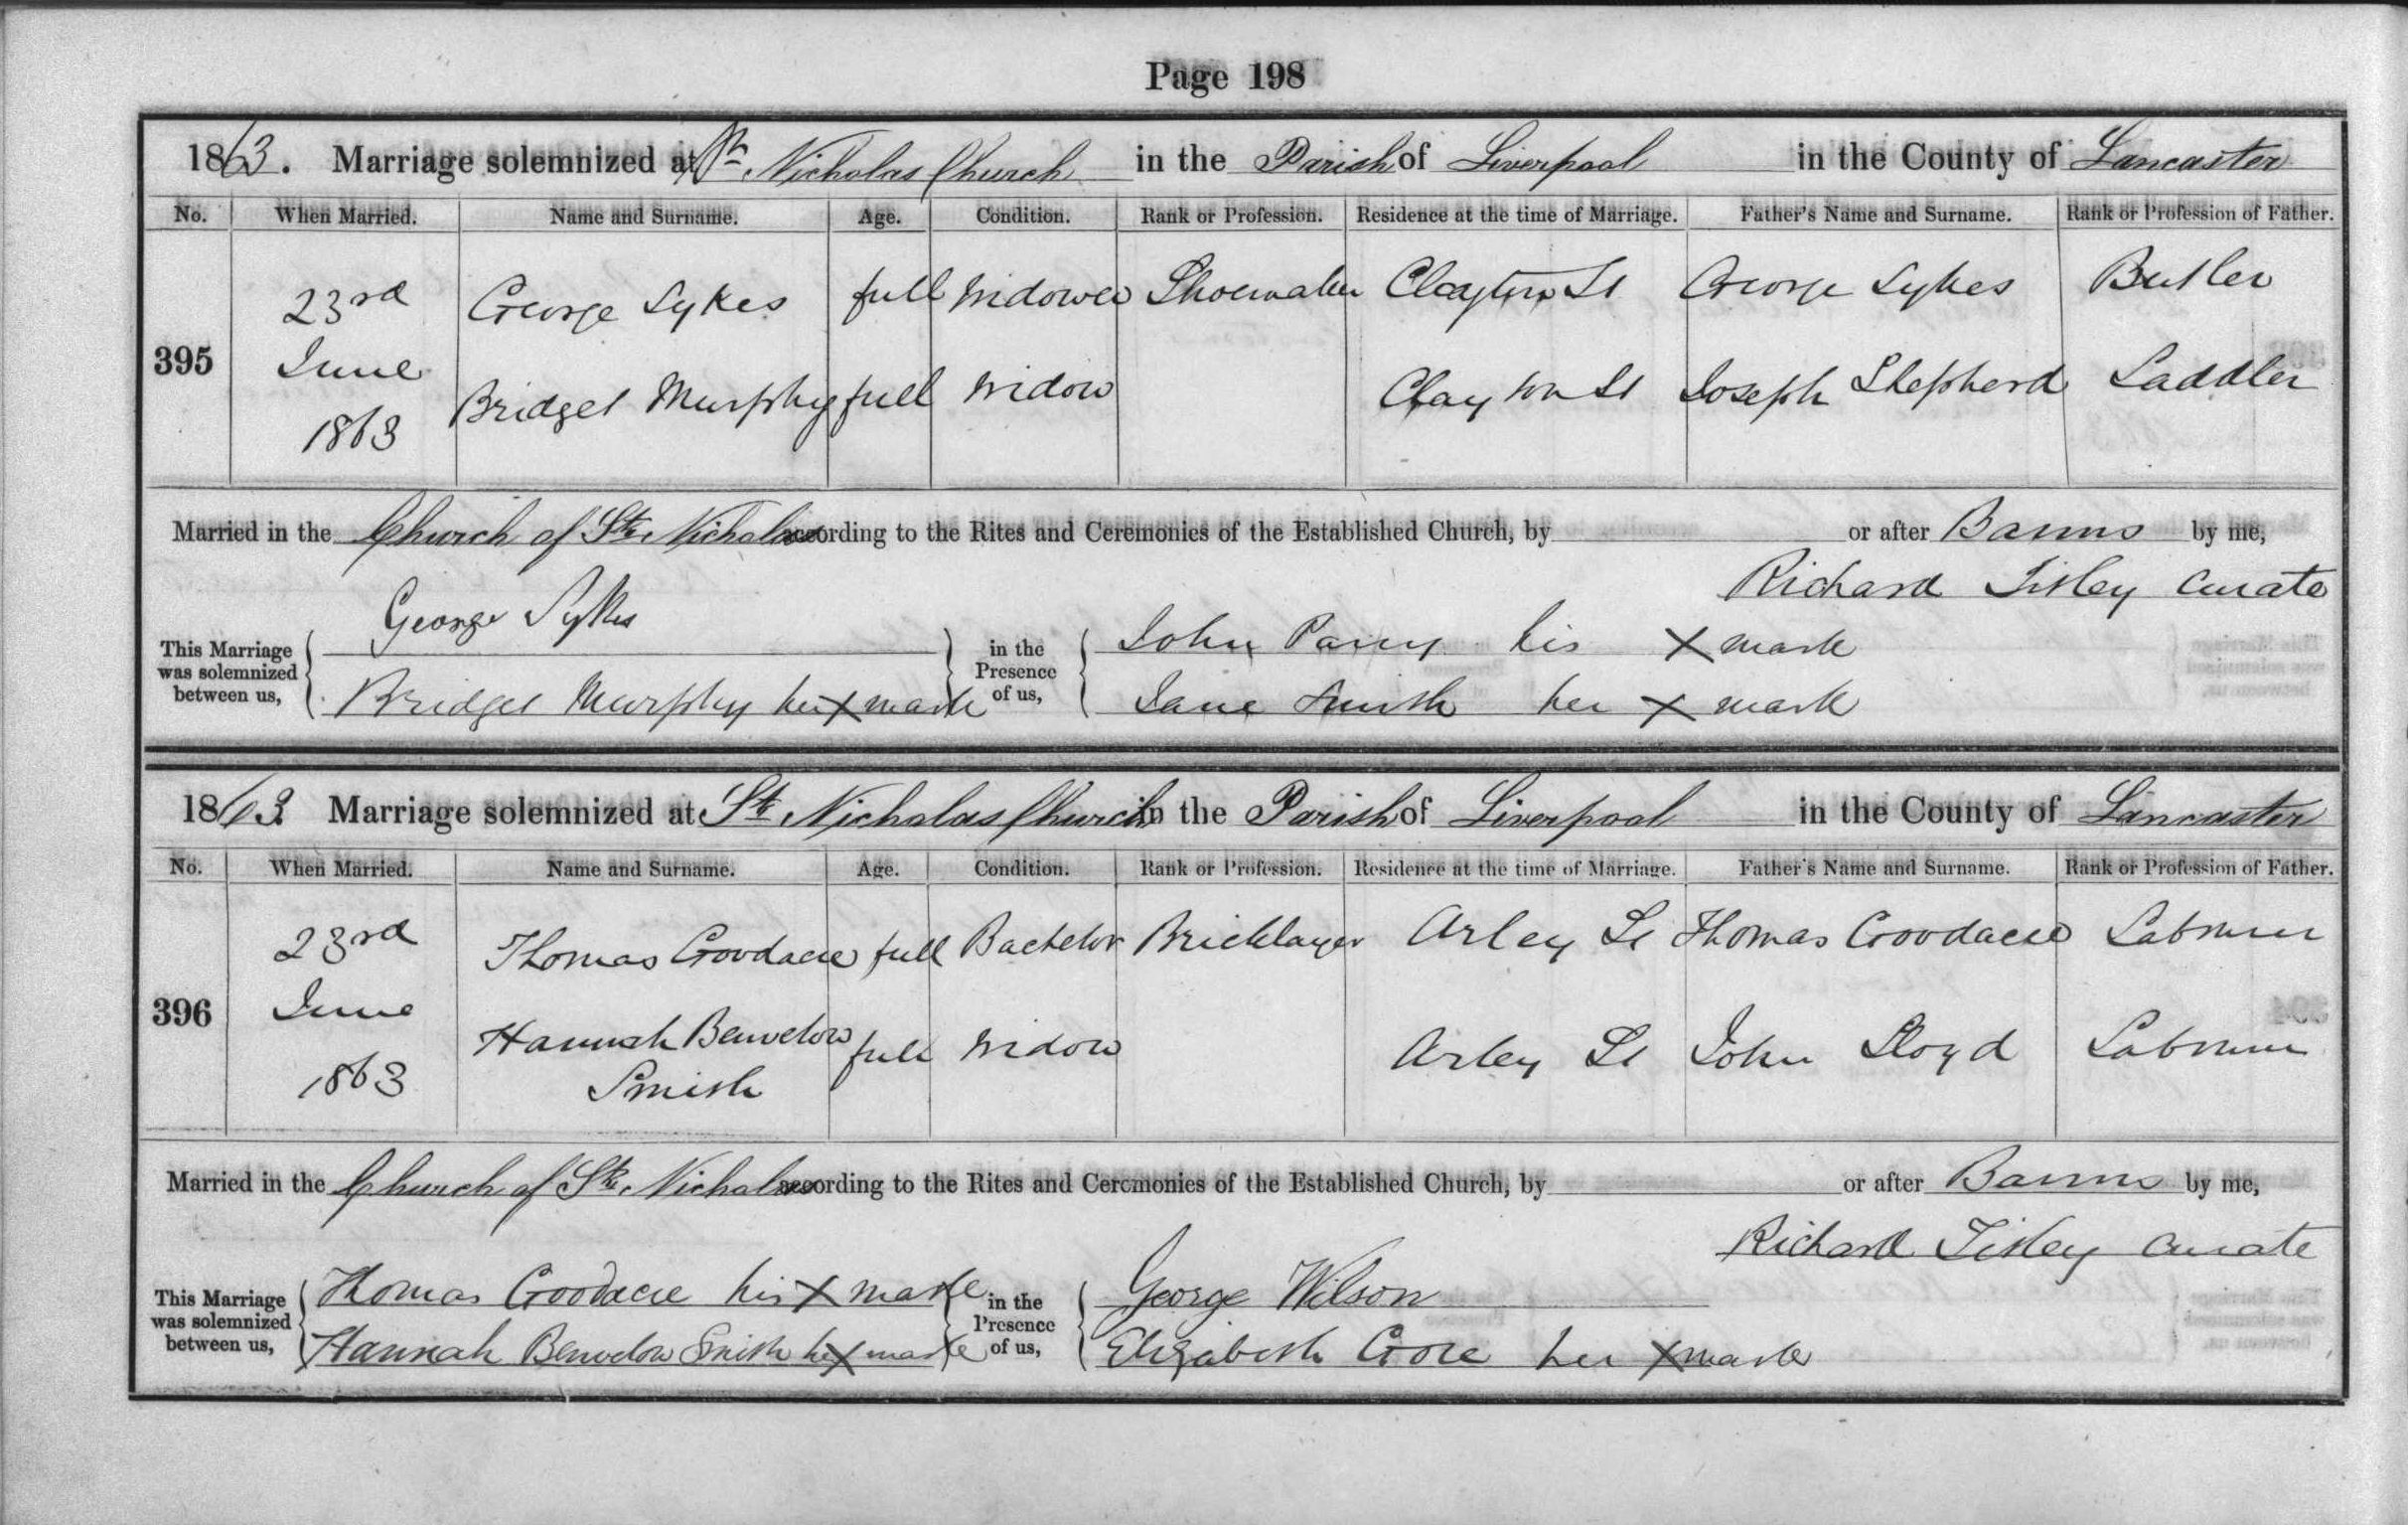 Page 198
1863. Marriage solemnized at St. Nicholas Church in the Parish of Liverpool in the County of Lancaster
No. When Married. Name and Surname. Age. Condition. Rank or Profession. Residence at the time of Marriage. Father's Name and Surname. Rank or Profession of Father.
395 23rd June 1863 George Sykes full Widower Shoemaker Clayton St George Sykes Butler
Bridget Murphy full Widow Clayton St Joseph Shepherd Saddler
Married in the Church of St. Nicholas according to the Rites and Ceremonies of the Established Church, by or after Banns by me,
Richard Tisley Curate
This Marriage was solemnized between us, George Sykes in the Presence of us, John Parry his X mark
Bridget Murphy her X mark Jane Smith her X mark
1863 Marriage solemnized at St. Nicholas Church in the Parish of Liverpool in the County of Lancaster
No. When Married. Name and Surname. Age. Condition. Rank or Profession. Residence at the time of Marriage. Father's Name and Surname. Rank or Profession of Father.
396 23rd June 1863 Thomas Goodacre full Bachelor Bricklayer Arley St Thomas Goodacre Labourer
Hannah Benvelow Smith full Widow Arley St John Lloyd Labourer
Married in the Church of St. Nicholas according to the Rites and Ceremonies of the Established Church, by or after Banns by me,
Richard Tisley Curate
This Marriage was solemnized between us, Thomas Goodacre his X mark in the Presence of us, George Wilson
Hannah Benvelow Smith her X mark Elizabeth Gore her X mark